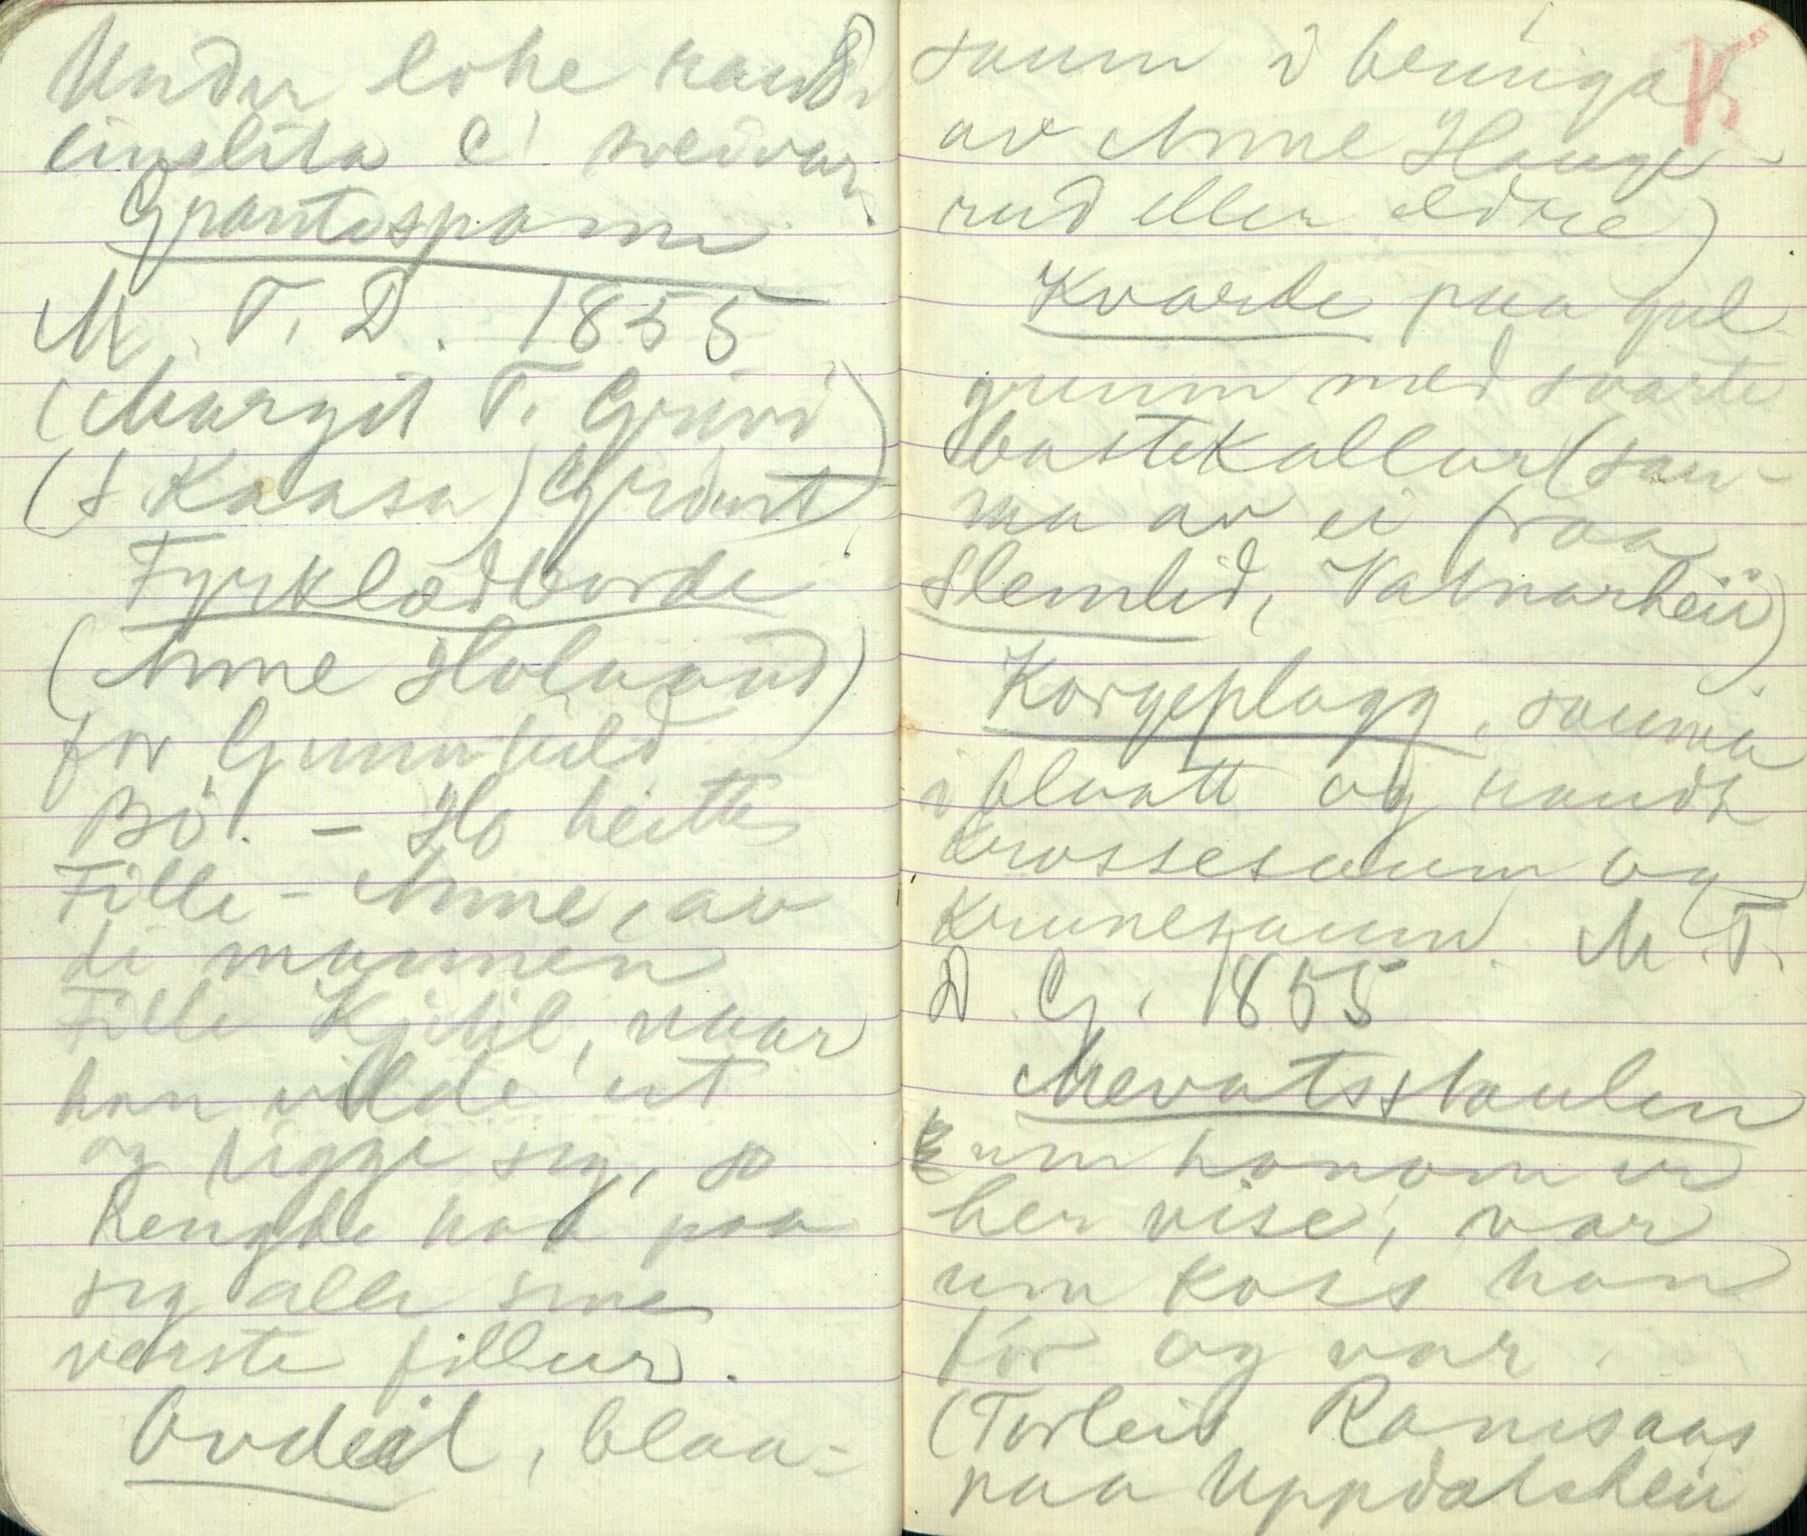 Under loke raud
einslita e' sveivar
Grautespann
M. T. D. 1855
(Margit T. Grivi)
(f. Kaasa) Grivi
Fyrklædborde
(Anne Holmaand)
for Gunnhild
Bö. – Ho heitte
Fille-Anne, av
di mannen
Fille Kjetil, naar
han vilde ut
og tigge seg, so
hengde han paa
seg alle sine
verste fillur.
Ovdeil, blaa-
saum i beringar
av Anne Hauge-
rud eller eldre)
15
Kvarde paa gul
grunn med svarte
bastekallar (sau-
ma av ei fraa
Slemlid, Vatnarheii)
Korgeplagg, sauma
i blaatt og raudt
krossesaum og
krunesaum. M. T.
D. G. 1855
Mevatsstaulen
um honom er
her vise, var
um koss han
for og var.
(Torleiv Ramsaas
paa Uppdalsheii